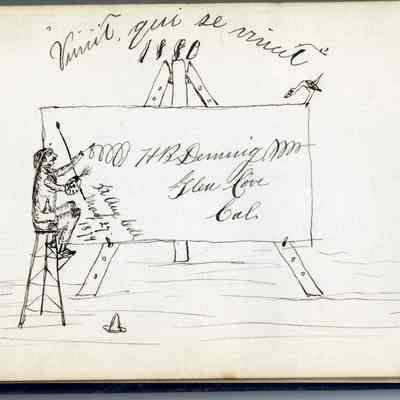 "Vincit, qui se vincit"
1880
H B Denning
Glen Cove
Cal.
May 27
1879